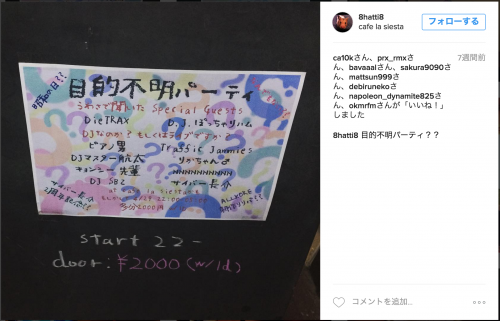 目的不明パーティ
うわさで聞いた Special Guests
DieTRAX
D.J.ぽっちゃりハム
DJなのか？もしくはライブですか？
ピアノ男
Traffic Jammies
DJマスター航太
りかちゃん♂
キョンシー先輩
wwwwwwwwww
DJ 582
サイバー長介
at cafe la siesta
サイバー長介
2周年記念!!
ALLKORE
start 22-
door: ¥2000 (w/1d)
8hatti8
cafe la siesta
フォローする
ca10kさん、prx_rmxさ
ん、bavaaalさん、sakura9090さ
ん、mattsun999さ
ん、debirunekoさ
ん、napoleon_dynamite825さ
ん、okmrfmさんが「いいね！」
しました
7週間前
8hatti8 目的不明パーティ？？
コメントを追加...